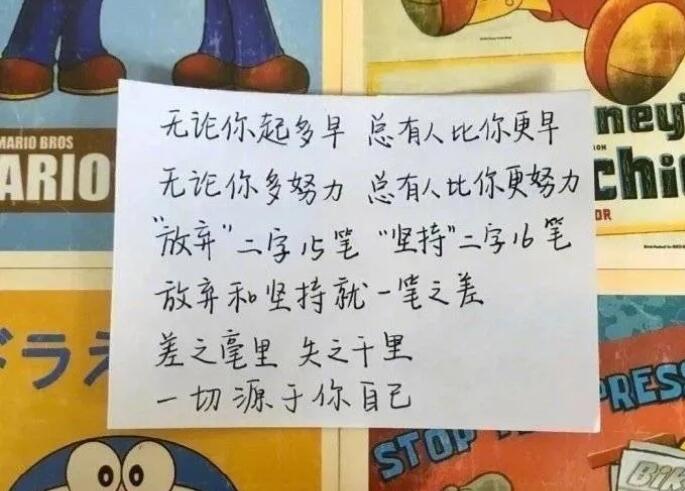 无论你起多早 总有人比你更早
无论你多努力 总有人比你更努力
“放弃”二字15笔 “坚持”二字16笔
放弃和坚持就一笔之差
差之毫里 失之千里
一切源于你自己
MARIO BROS
ARIO
ney
chi
OR
ドラえ
STOP
PRESS
BiK